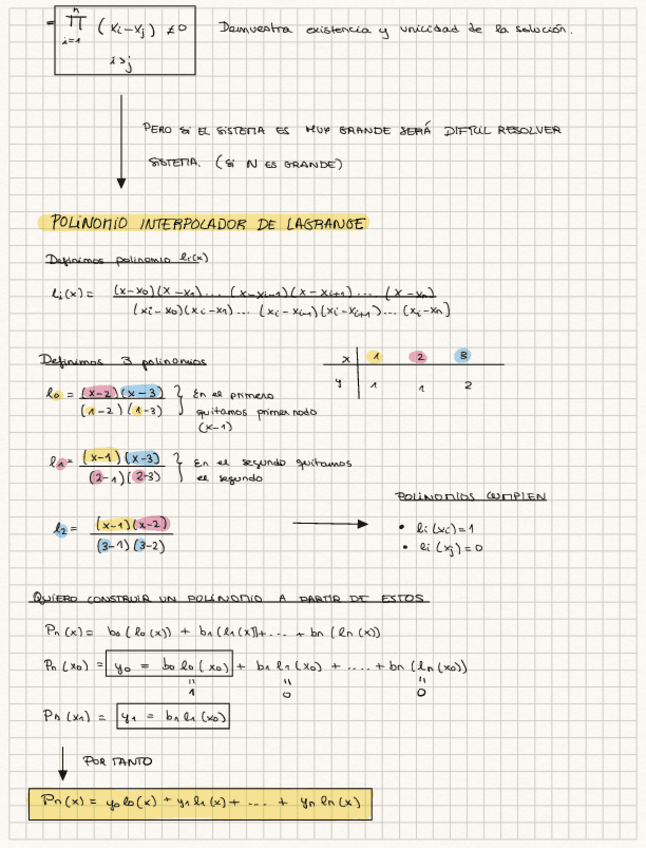 = n ∏ i=1 i>j (xi-xj) ≠0 Demuestra existencia y unicidad de la solución.
PERO SI EL SISTEMA ES MUY GRANDE SERÁ DIFÍCIL RESOLVER
SISTEMA. (SI N ES GRANDE)
POLINOMIO INTERPOLADOR DE LAGRANGE
Definimos polinomio li(x)
li(x)= (x-x0)(x-x1)... (x-xi-1)(x-xi+1)... (x-xn)
(xi-x0)(xi-x1)... (xi-xi-1)(xi-xi+1)... (xi-xn]
Definimos 3 polinomios
x 1 2 3
y 1 1 2
l0 = (x-2)(x-3) / (1-2)(1-3) } En el primero
quitamos primer nodo
(x-1)
l1= (x-1)(x-3) / (2-1)(2-3) } En el segundo quitamos
el segundo
POLINOMIOS CUMPLEN
l2= (x-1)(x-2) / (3-1)(3-2)
• li(xi)=1
• li(xj)=0
QUIERO CONSTRUIR UN POLINOMIO A PARTIR DE ESTOS
Pn(x)= b0(l0(x)) + b1(l1(x)]+.... + bn(ln(x))
Pn(x0) = y0 = b0l0(x0) + b1l1(x0) + .... + bn(ln(x0))
" " "
1 0 0
Pn(x1) = y1 = b1l1(x0)
POR TANTO
Pn(x) = y0l0(x) + y1l1(x) + .... + ynln(x)